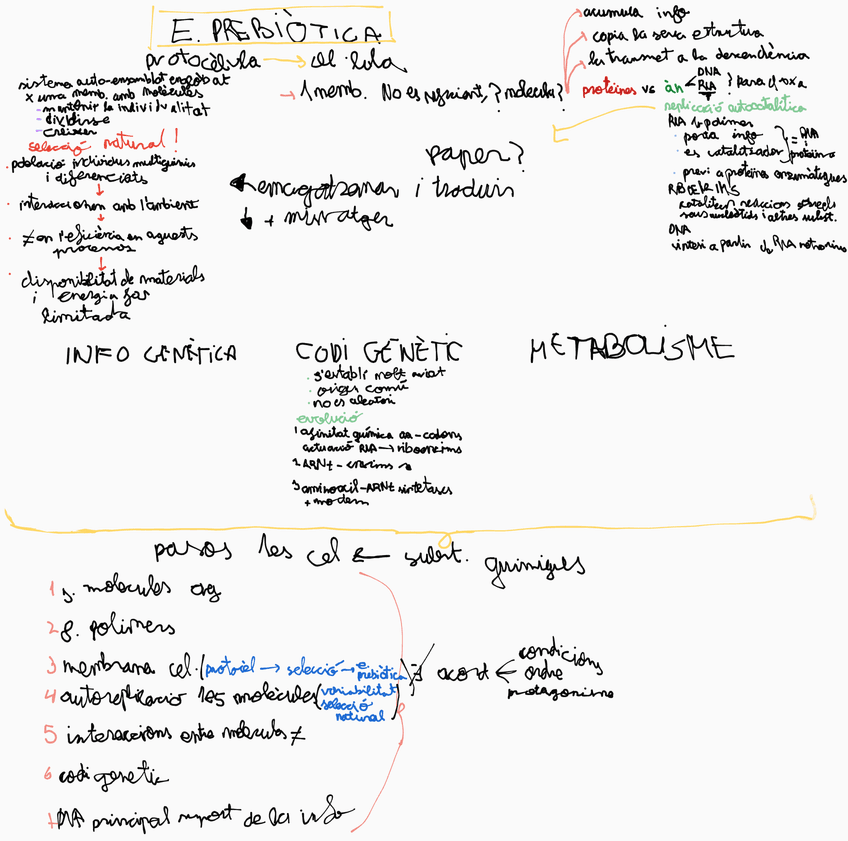 E. PREBIÒTICA
protocèl·lula → cèl·lula
sistema auto-ensamblat englobat
x una memb. amb molècules
- mantenir la individualitat
- dividirse
- créixer
selecció natural!
· població individus multigènics
i diferenciats
· interaccionen amb l'ambient
· ≠ en l'eficiència en aquests
processos
· disponibilitat de materials
i energia
limitada
→ 1 memb. No es suficient, ? molècula?
acumula info
copia la seva estrutura
la transmet a la descendència
proteïnes vs àn
DNA
RNA
? para q no x a
replicació autocatalítica
RNA
· porta info
· es catalitzador
= DNA
proteïna
· previ a proteïnes enzimàtiques
RIBOZIMS
DNA
síntesi a partir de RNA
paper?
← emmagatzemar i traduir
↓ + missatger
INFO GENÈTICA
CODI GENÈTIC
· s'establí molt aviat
· origen comú
· no es aleatori
evolució
1 afinitat química aa-codons
actuació RNA → ribozims
2 ARNt -
3 aminoacil-ARNt sintetases
+ modern
METABOLISME
pasos les cel ← subst. químiques
1 s. molècules org
2 f. polímers
3 membrana cel. (protocel → selecció → e. prebiòtica)
4 autoreplicació les molècules (variabilitat
selecció
natural)
5 interaccions entre molècules ≠
6 codi genetic
7 DNA principal suport de la info
∄ acord ←
condicions
ordre
protagonisme